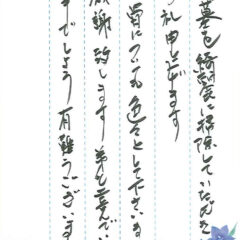 墓を綺麗に掃除していただき
お礼申し上げます
皆についても色々として下さいま
感謝致します 弟も喜んでい
すでしょう 有難うございます